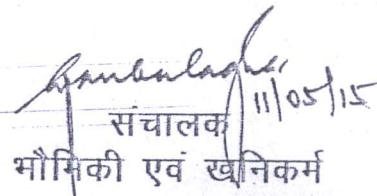 11/05/15
संचालक
भौमिकी एवं खनिकर्म